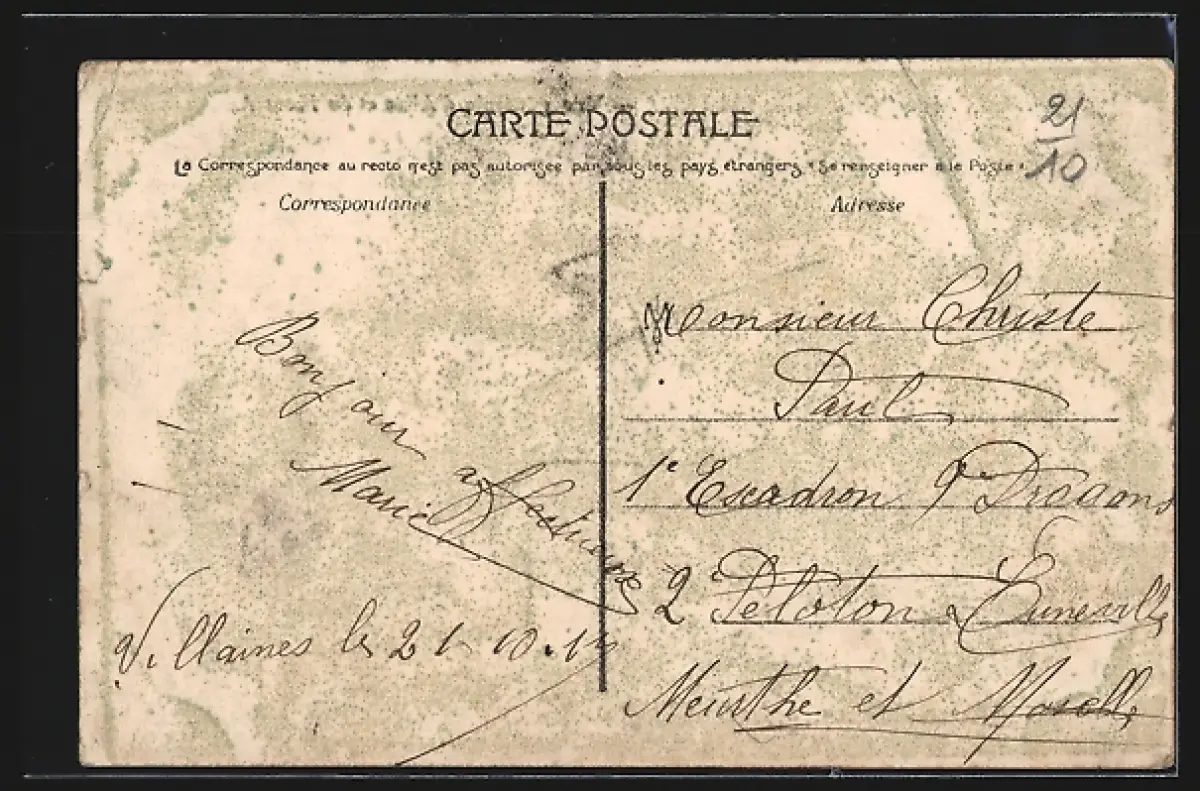 CARTE POSTALE
21
10
La Correspondance au recto n'est pas autorisée par tous les pays étrangers (Se renseigner à la Poste)
Correspondance
Adresse
Bonjour affectueux
Marie
Villaines le 21 10.
Monsieur Christe
Paul
1e Escadron 9e Dragons
2 Peloton Luneville
Meurthe et Moselle